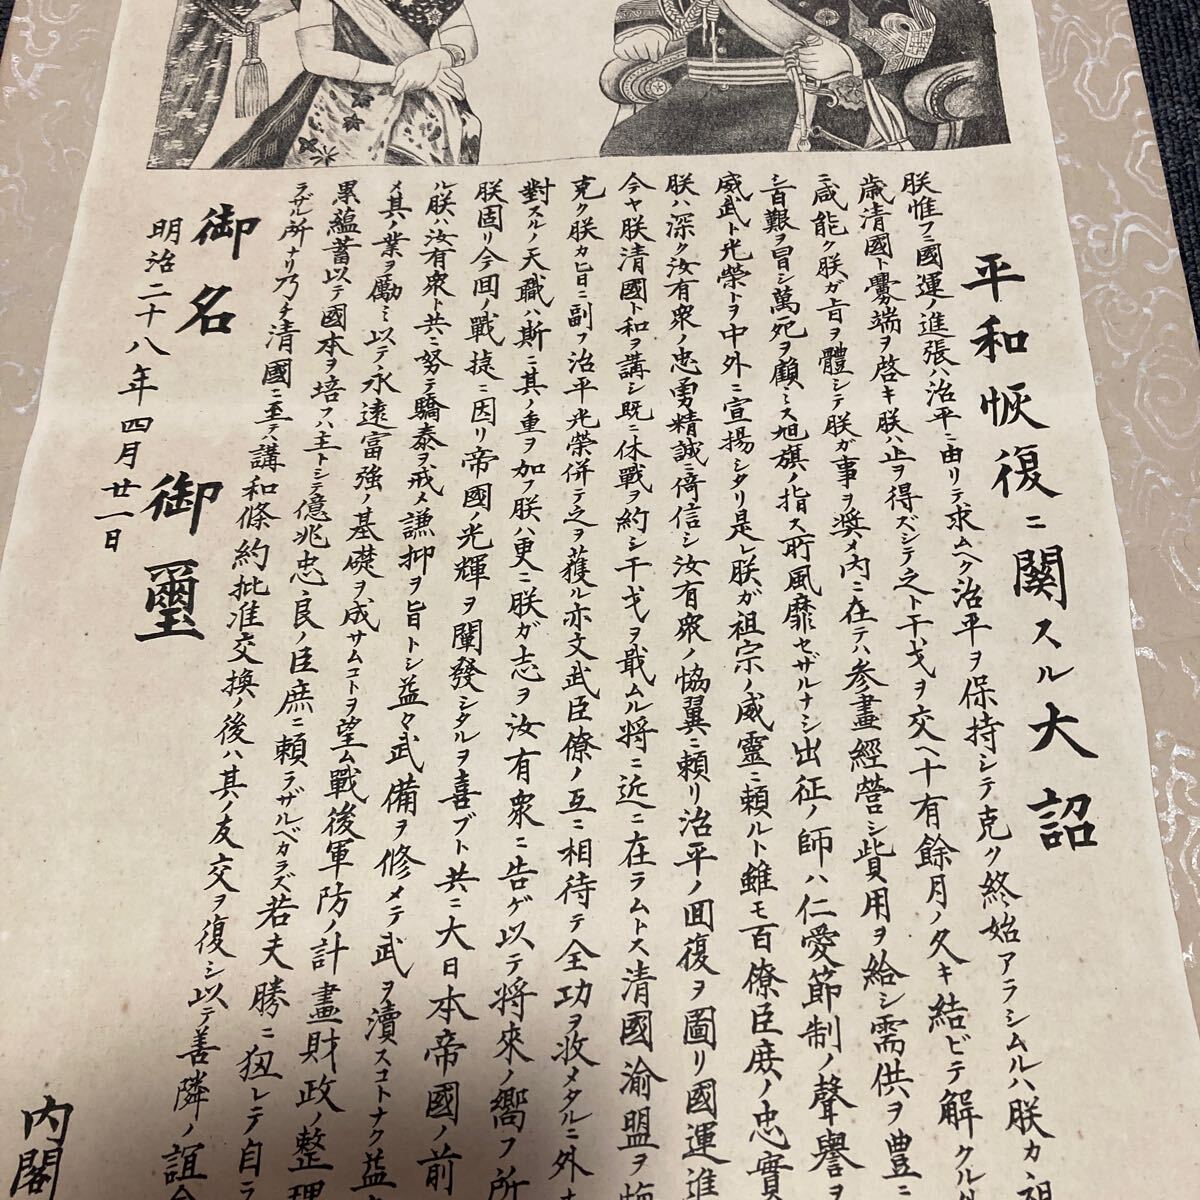 平和恢復ニ關スル大詔
朕惟フニ國運ノ進張ハ治平ニ由リテ求ムヘク治平ヲ保持シテ克ク終始アラシムルハ朕カ祖
歳清國ト釁端ヲ啓キ朕ハ止ヲ得ズシテ之ト干戈ヲ交ヘ十有餘月ノ久キ結ビテ解クル
ニ咸能ク朕ガ旨ヲ體シテ朕ガ事ヲ奬メ內ニ在テハ參畫經營シ貲用ヲ給シ需供ヲ豊ニ
シ百艱ヲ冒シ萬死ヲ顧ミス旭旗ノ指ス所風靡セザルナシ出征ノ師ハ仁愛節制ノ聲譽ヲ
威武ト光榮トヲ中外ニ宣揚シタリ是レ朕ガ祖宗ノ威靈ニ賴ルト雖モ百僚臣庶ノ忠實
朕ハ深ク汝有衆ノ忠勇精誠ニ倚信シ汝有衆ノ恊翼ニ賴リ治平ノ囬復ヲ圖リ國運進
今ヤ朕清國ト和ヲ講シ既ニ休戰ヲ約シ干戈ヲ戢ムル將ニ近ニ在ラムトス清國渝盟ヲ悔
克ク朕カ旨ニ副フ治平光榮併テ之ヲ獲ル亦文武臣僚ノ互ニ相待テ全功ヲ收メタルニ外
對スルノ天職ハ斯ニ其ノ重ヲ加フ朕ハ更ニ朕ガ志ヲ汝有衆ニ告ゲ以テ將來ノ嚮フ所
朕固リ今囬ノ戰捷ニ因リ帝國光輝ヲ闡發シタルヲ喜ブト共ニ大日本帝國ノ前
ル朕ハ汝有衆ト共ニ努テ驕泰ヲ戒メ謙抑ヲ旨トシ益々武備ヲ修メテ武ヲ瀆スコトナク益
メ其ノ業ヲ勵ミ以テ永遠富強ノ基礎ヲ成サムコトヲ望ム戰後軍防ノ計畫財政ノ整理
累蘊蓄以テ國本ヲ培フハ主トシテ億兆忠良ノ臣庶ニ賴ラザルベカラズ若夫勝ニ狃レテ自ラ
ラザル所ナリ乃チ清國ニ至テハ講和條約批准交換ノ後ハ其ノ友交ヲ復シ以テ善隣ノ誼
御名 御璽
明治二十八年四月廿一日
內閣